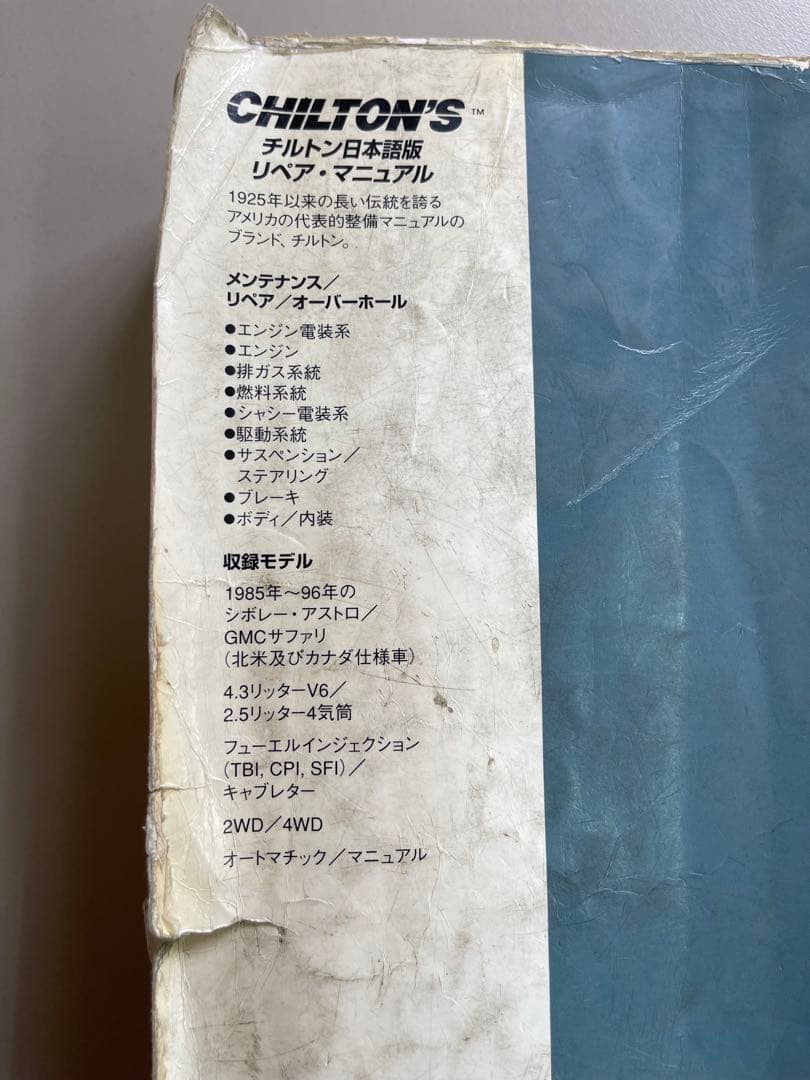 CHILTON'S™
チルトン日本語版
リペア・マニュアル
1925年以来の長い伝統を誇る
アメリカの代表的整備マニュアルの
ブランド、チルトン。
メンテナンス／
リペア／オーバーホール
●エンジン電装系
●エンジン
●排ガス系統
●燃料系統
●シャシー電装系
●駆動系統
●サスペンション／
ステアリング
●ブレーキ
●ボディ／内装
収録モデル
1985年〜96年の
シボレー・アストロ／
GMCサファリ
（北米及びカナダ仕様車）
4.3リッターV6／
2.5リッター4気筒
フューエルインジェクション
（TBI, CPI, SFI）／
キャブレター
2WD／4WD
オートマチック／マニュアル